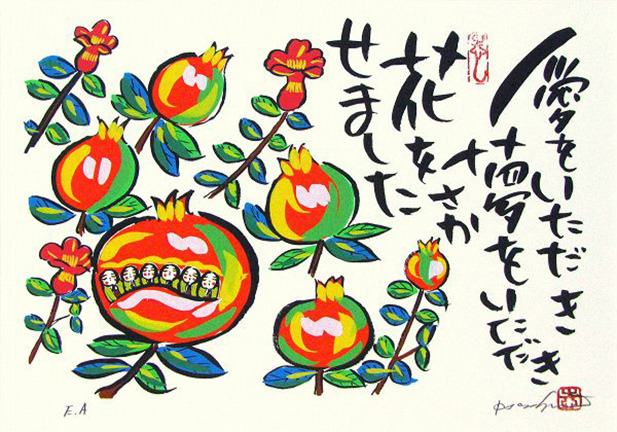 愛をいただき
夢をいただき
花をさか
せました
E.A